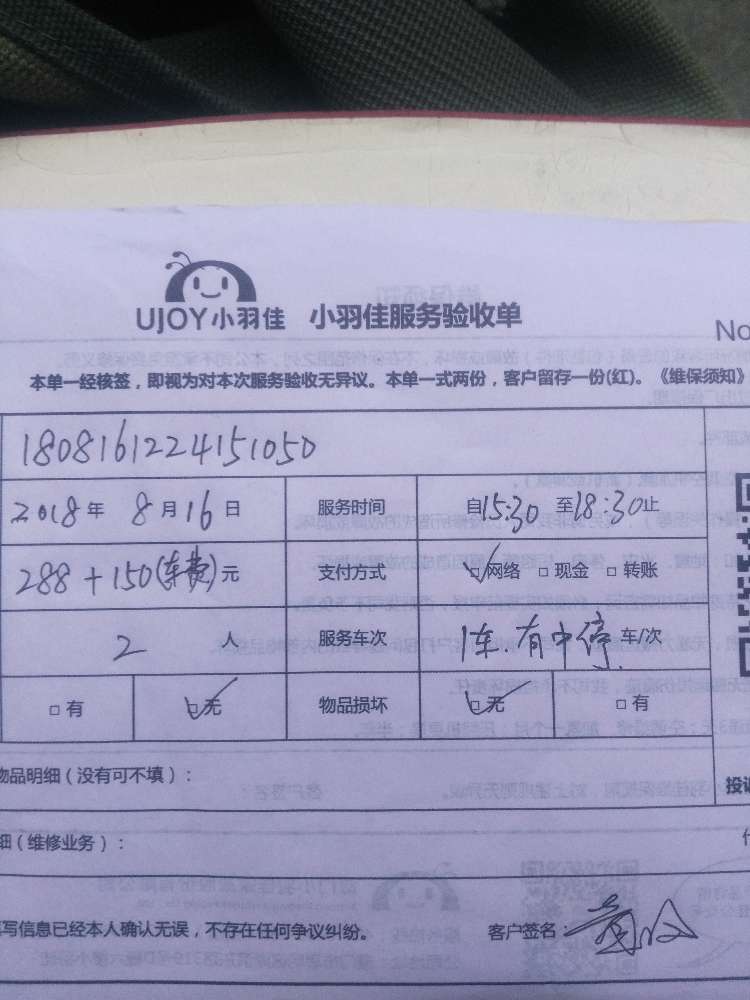 UJOY小羽佳 小羽佳服务验收单
No
本单一经核签，即视为对本次服务验收无异议。本单一式两份，客户留存一份(红)。《维保须知》
1808161224151050
2018年 8月16日 服务时间 自15:30至18:30止
288+150(车费)元 支付方式 □网络 □现金 □转账
2 人 服务车次 1车.有中停 车/次
□有 □无 物品损坏 □无 □有
物品明细（没有可不填）：
投诉
细（维修业务）：
写信息已经本人确认无误，不存在任何争议纠纷。 客户签名：